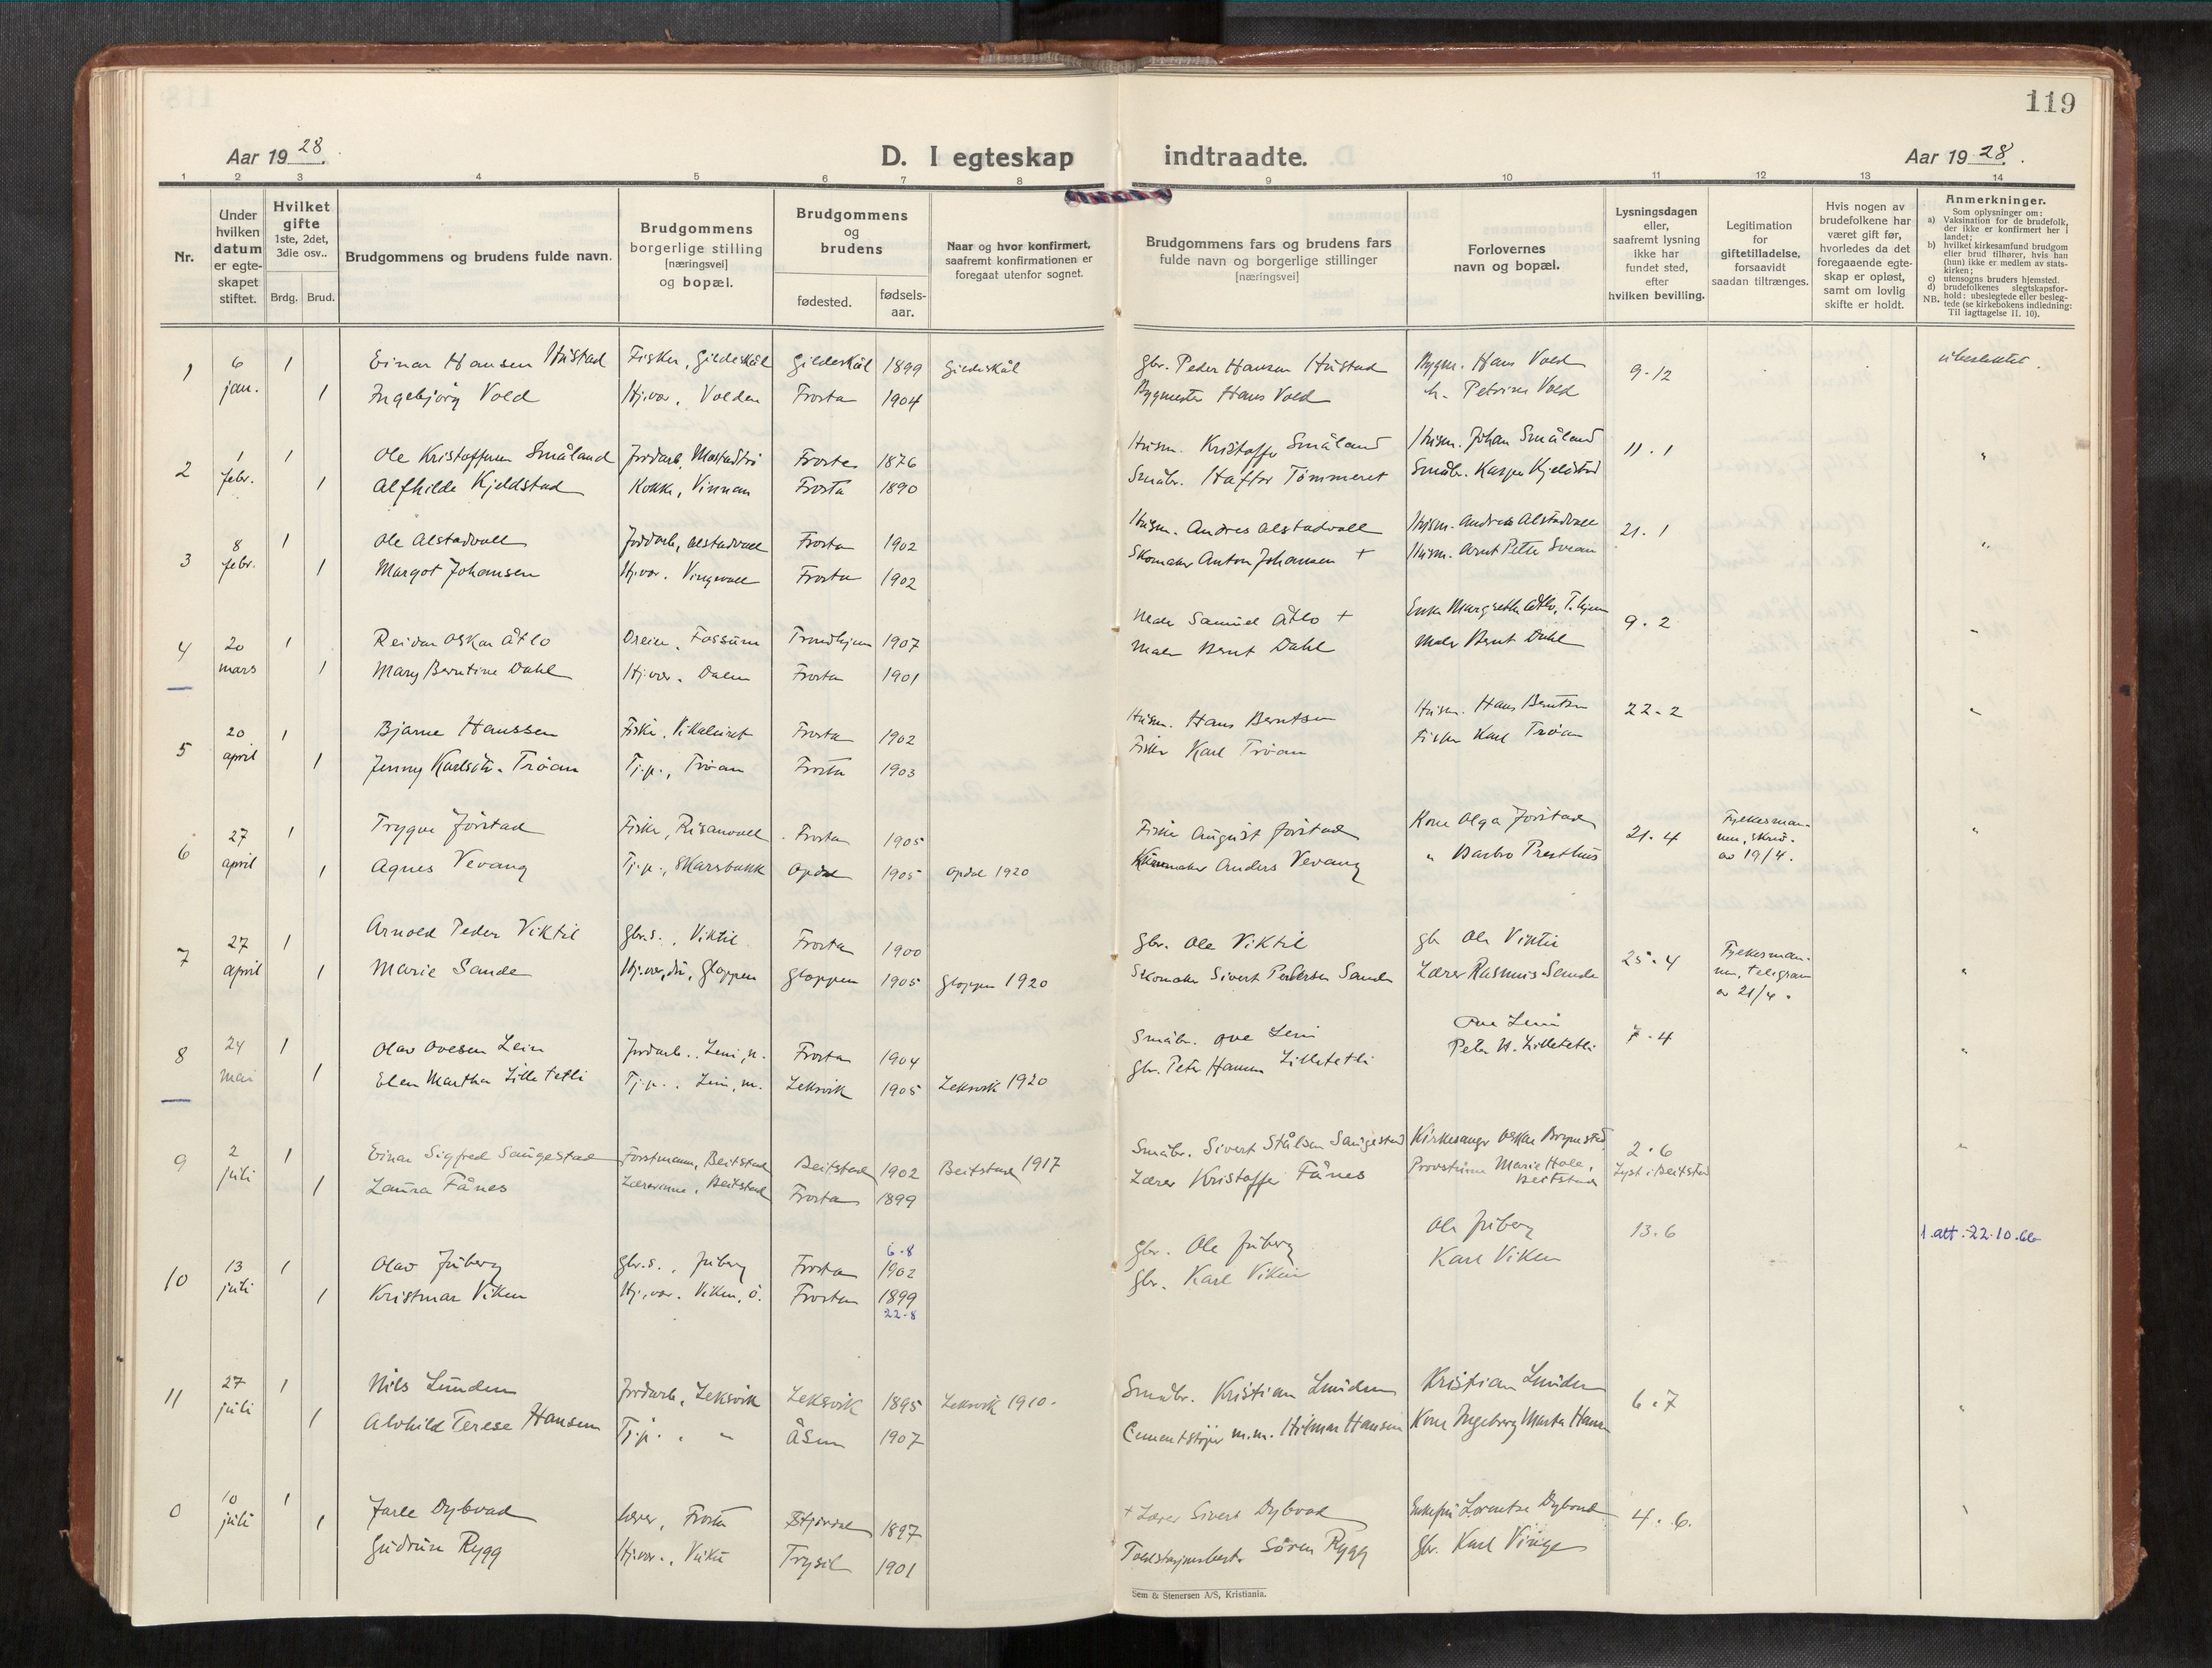 119
Aar 1928.
D. I egteskap indtraadte.
Aar 1928.
1 2 3 4 5 6 7 8 9 10 11 12 13 14
Nr.
Under hvilken datum er egteskapet stiftet.
Hvilket gifte 1ste, 2det, 3die osv..
Brdg. Brud.
Brudgommens og brudens fulde navn.
Brudgommens borgerlige stilling [næringsvei] og bopæl.
Brudgommens og brudens
fødested. fødsels-aar.
Naar og hvor konfirmert, saafremt konfirmationen er foregaat utenfor sognet.
Brudgommens fars og brudens fars fulde navn og borgerlige stillinger [næringsvei]
Forlovernes navn og bopæl.
Lysningsdagen eller, saafremt lysning ikke har fundet sted, efter hvilken bevilling.
Legitimation for giftetilladelse, forsaavidt saadan tiltrænges.
Hvis nogen av brudefolkene har været gift før, hvorledes da det foregaaende egteskap er opløst, samt om lovlig skifte er holdt.
Anmerkninger.
Som oplysninger om:
a) Vaksination for de brudefolk, der ikke er konfirmert her i landet;
b) hvilket kirkesamfund brudgom eller brud tilhører, hvis han (hun) ikke er medlem av statskirken;
c) utensogns bruders hjemsted.
d) brudefolkenes slegtskapsforhold: ubeslegtede eller beslegtede (se kirkebokens indledning:
NB. Til iagttagelse II. 10).
1 6 jan. 1 Einar Hansen Hustad Fisker, Gildeskål Gildeskål 1899 Gildeskål Gbr. Peder Hansen Hustad Bygm. Hans Vold 9-12 ubeslektet
1 Ingebjörg Vold Hj.vær. Volden Frosta 1904 Bygmester Hans Vold h. Petrine Vold
2 1 febr. 1 Ole Kristoffersen Småland Jordarb. Frosta 1876 Husm. Kristoffer Småland Husm. Johan Småland 11.1 "
1 Alfhilde Kjeldstad Kokke, Vinnan Frosta 1890 Småbr. Haftor Tömmeret Småbr. Kasper Kjeldstad
3 8 febr. 1 Ole Alstadvall Jordarb, Alstadvall Frosta 1902 Husm. Andres Alstadvall Husm. Andreas Alstadvall 21.1 "
1 Margot Johansen Hj.vær. Vingevall Frosta 1902 Skomaker Anton Johansen + Husm. Arnt Petter
4 20 mars 1 Reidar Oskar Åtlo Fossum Trondhjem 1907 Maler Samuel Åtlo + Enke Margrethe Åtlo, T.hjem 9.2 "
1 Mary Berntine Dahl Hj.vær. Dalen Frosta 1901 Maler Bernt Dahl Maler Bernt Dahl
5 20 april 1 Bjarne Hanssen Fisker, Vikaleiret Frosta 1902 Husm. Hans Berntsen Husm. Hans Berntsen 22-2 "
1 Jenny Karlsdtr. Tröan Tj.p., Tröan Frosta 1903 Fisker Karl Tröan Fisker Karl Tröan
6 27 april 1 Trygve Jörstad Fisker, Risanvall Frosta 1905 Fisker August Jörstad Kone Olga Jörstad 21.4 Fylkesmannen, skriv. av 19/4. "
1 Agnes Vevang Tj.p., Skarsbakk Opdal 1905 Opdal 1920 Anders Vevang " Barbro Presthus
7 27 april 1 Arnold Peder Viktil Gbr.s., Viktil Frosta 1900 Gbr. Ole Viktil gbr Ole Viktil 25.4 Fylkesmannen, telegram av 21/4. "
1 Marie Sande Hj.vær, Gloppen Gloppen 1905 Gloppen 1920 Skomaker Sivert Pedersen Sande Lærer Rasmus Sande
8 24 mai 1 Olav Ovesen Lein Jordarb., Lein, n. Frosta 1904 Småbr. Ove Lein Ove Lein 7.4 "
1 Elen Martha Lilletetli Tj.p., Lein, n. Leksvik 1905 Leksvik 1920 Gbr. Peter Hansen Lilletetli Peter H. Lilletetli
9 2 juli 1 Einar Sigfred Saugestad Forstmann, Beitstad Beitstad 1902 Beitstad 1917 Småbr. Sivert Stålsen Saugestad Kirkesanger Oskar 2.6 Lyst i Beitstad "
1 Laura Fånes Lærerinne, Beitstad Frosta 1899 Lærer Kristoffer Fånes Provstinne Marie Hole, Beitstad
10 13 juli 1 Olav Juberg Gbr.s., Juberg Frosta 6-8 1902 Gbr. Ole Juberg Ole Juberg 13.6 1.att.-22.10.66
1 Kristmar Viken Hj.vær. Viken, ö. Frosta 1899 22-8 Gbr. Karl Viken Karl Viken
11 27 juli 1 Nils Lunden Jordarb, Leksvik Leksvik 1895 Leksvik 1910. Småbr. Kristian Lunden Kristian Lunden 6.7 "
1 Alvhild Terese Hansen Tj.p. " Åsen 1907 Cementstøper m.m. Hilmar Hansen Kone Ingeborg Marta Hansen
0 10 juli 1 Jarle Dybvad Lærer, Frosta Stjørdal 1897 + Lærer Sivert Dybvad Enkefru Lorentse Dybvad 4.6. "
1 Gudrun Rygg Hj.vær., Trysil 1901 Sören Rygg Gbr. Karl Vinge
Sem & Stenersen A/S, Kristiania.